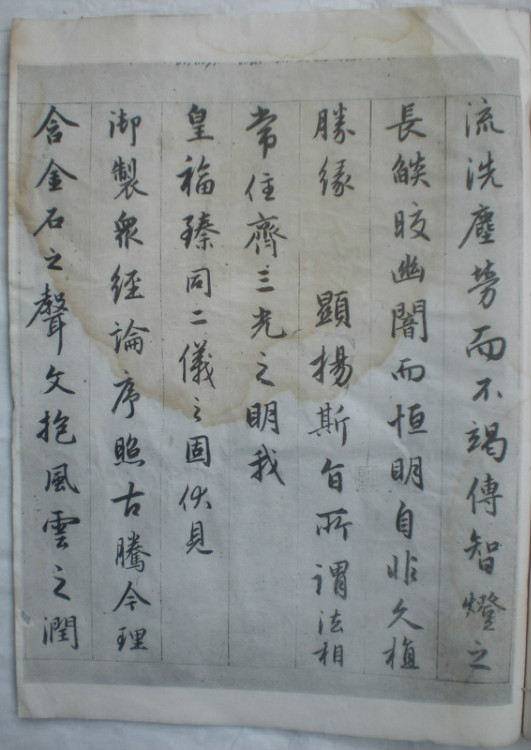 流洗塵勞而不竭傳智燈之
長皎幽闇而恒明自非久植
勝緣 顯揚斯旨所謂法相
常住齊三光之明我
皇福臻同二儀之固伏見
御製衆經論序照古騰今理
含金石之聲文抱風雲之潤